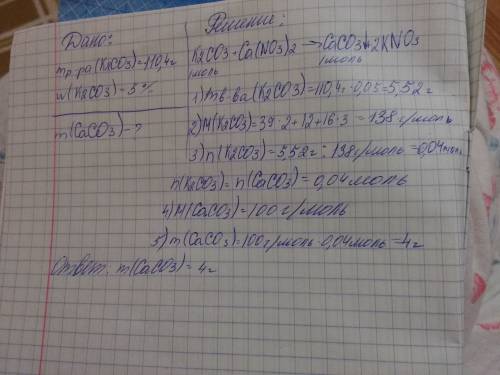 Дано:
mр.ра(K2CO3)=110,4г
w(K2CO3)=5%
m(CaCO3)-?
Решение:
K2CO3+Ca(NO3)2→CaCO3+2KNO3
1моль 1моль
1) mв-ва(K2CO3)=110,4г·0,05=5,52г
2) M(K2CO3)=39·2+12+16·3=138г/моль
3) n(K2CO3)=5,52г:138г/моль=0,04моль
n(K2CO3)=n(CaCO3)=0,04моль
4) M(CaCO3)=100г/моль
5) m(CaCO3)=100г/моль·0,04моль=4г
Ответ. m(CaCO3)=4г